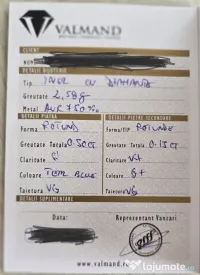 VALMAND
CLIENT
DETALII BIJUTERIE
Tip INEL CU DIAMANTE
Greutate 2,58g
Metal AUR 750‰
DETALII PIATRA
Forma ROTUND
Greutate Totala 0.50ct
Claritate
Culoare
Taietura VG
DETALII PIETRE SECUNDARE
Forma/TIP ROTUNDE
Greutate Totala 0.15ct
Claritate
Culoare G+
Taietura VG
DETALII SUPLIMENTARE
Data:
Reprezentant Vanzari
www.valmand.ro
lajumate.ro